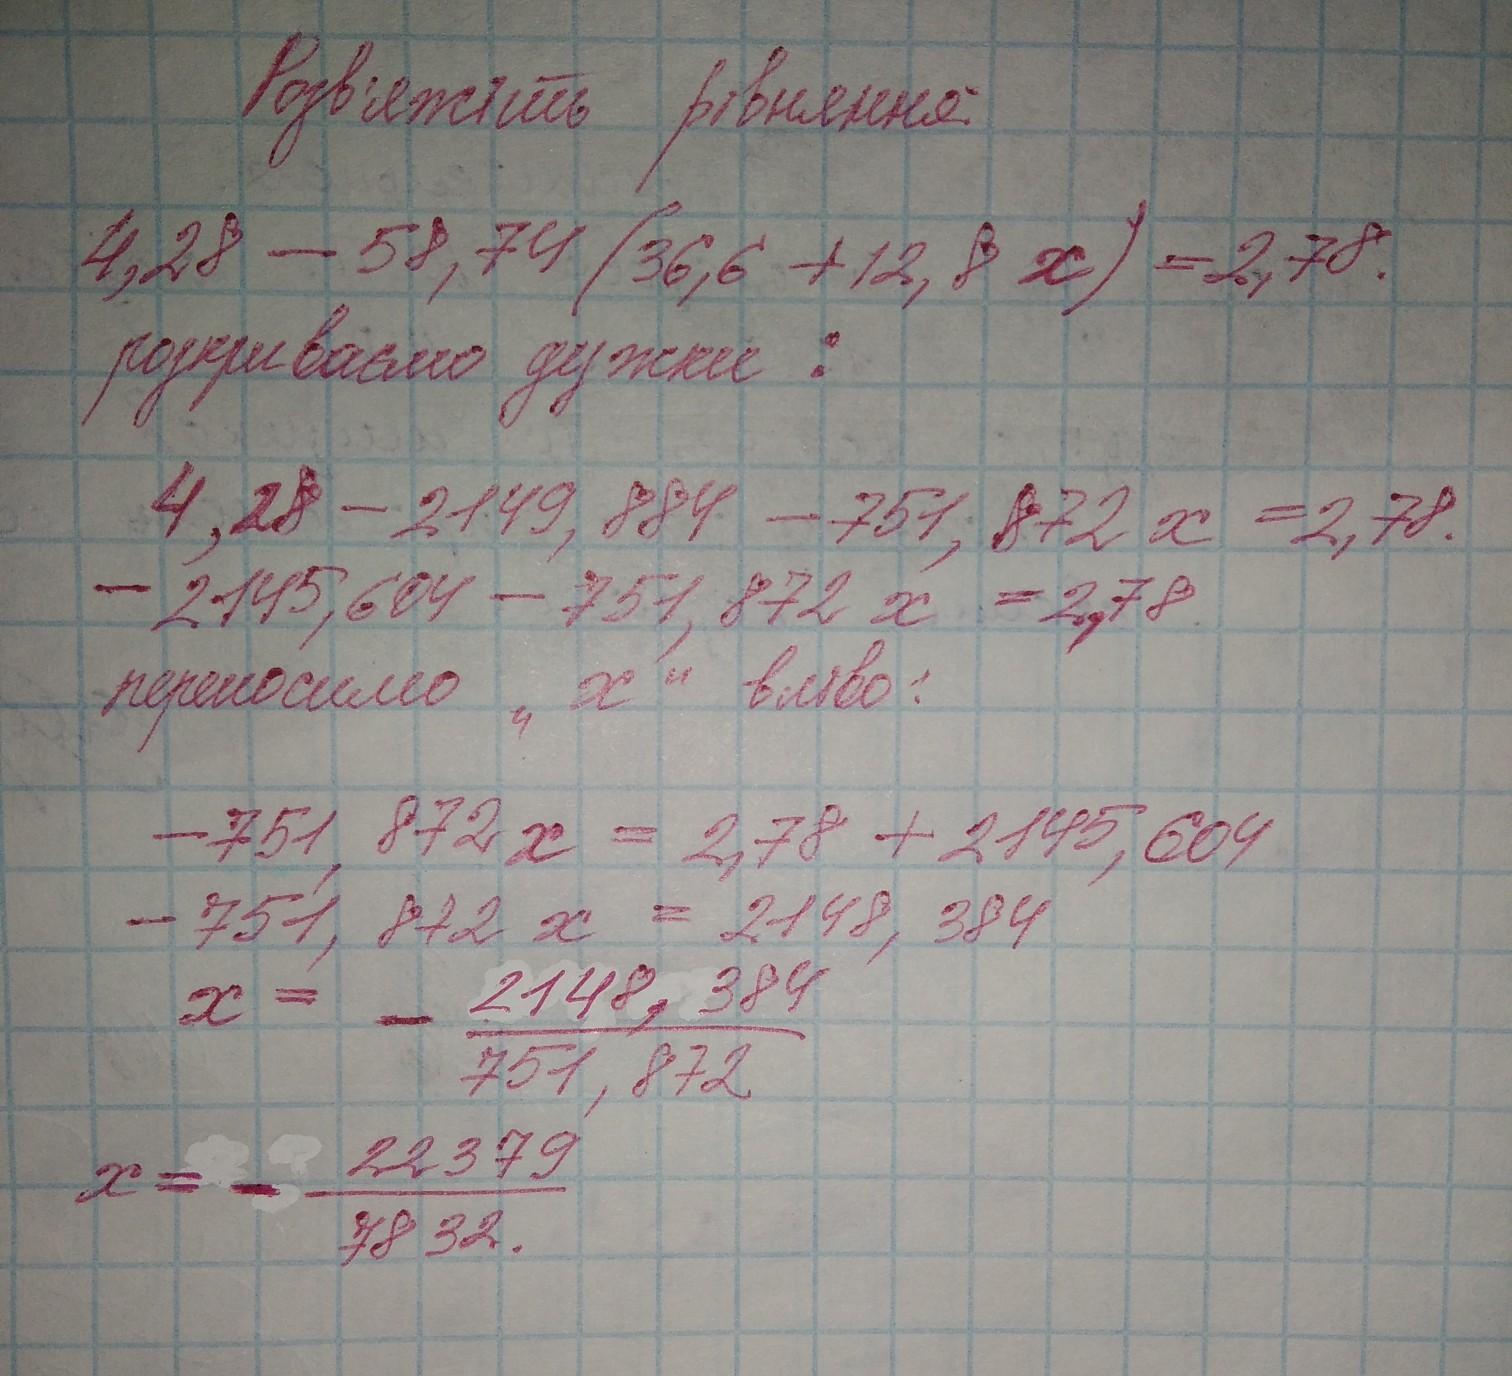 Розв'яжіть рівняння:
4,28 − 58,74 (36,6 + 12,8 x) = 2,78.
розкриваємо дужки :
4,28 − 2149,884 − 751,872 x = 2,78.
− 2145,604 − 751,872 x = 2,78
переносимо „x“ вліво:
− 751,872 x = 2,78 + 2145,604
− 751,872 x = 2148,384
x = − 2148,384
751,872
x = − 22379
7832.